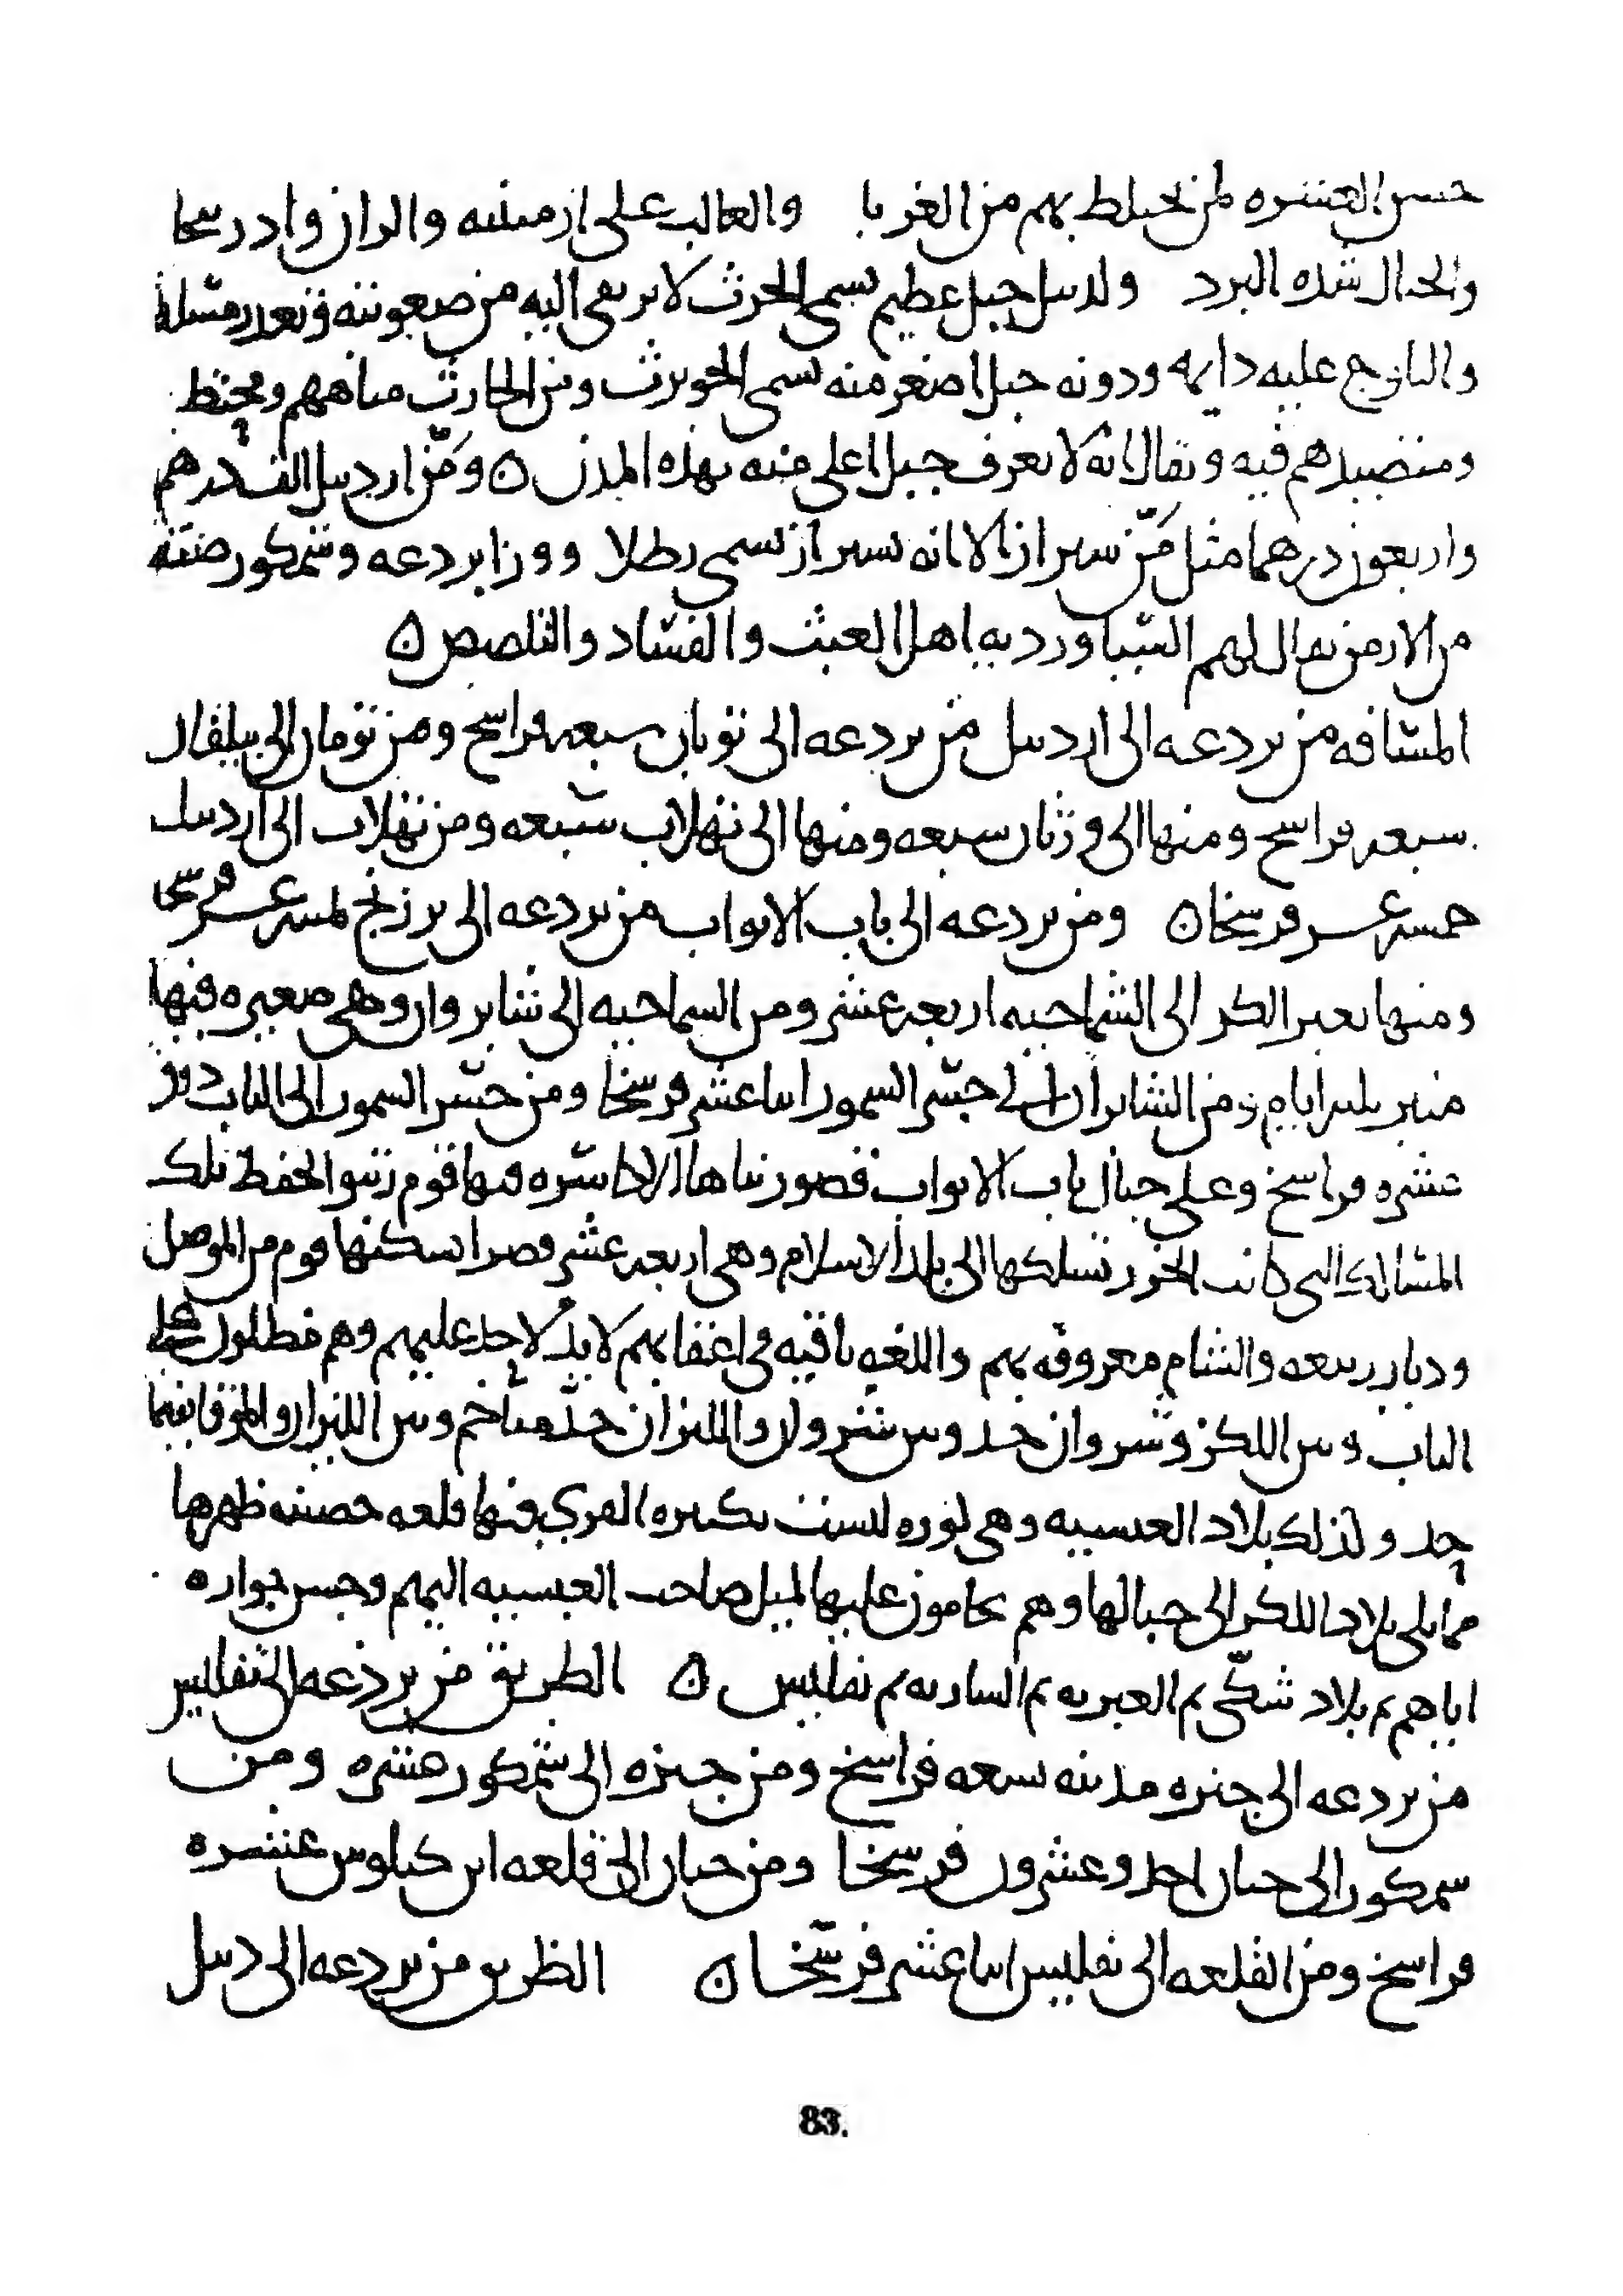 حسن العشره لمن يختلط بهم من الغربا والغالب على ارمينيه والران وادربيجان
والجبال شده البرد ولدبيل جبل عظيم يسمى الحرث لا يرتقى اليه من صعوبته وتعذر مسلكه
والثلوج عليه دايمه ودونه جبل اصغر منه يسمى الحويرث ومن الحارث مياههم ومحتطبهم
ومتصيدهم فيه ويقال انه لا يعرف جبل اعلى منه بهذه المدن ه ومَنّ اردبيل الف درهم
واربعون درهما مثل مَنّ شيراز الا انه بشيراز يسمى رطلا ووزا بردعه وشمكور صنف
من الارمن يقال لهم السياورديه اهل العبث والفساد والتلصص ه
المسافه من بردعه الى اردبيل من بردعه الى يونان سبعه فراسخ ومن يونان الى بيلقان
سبعه فراسخ ومنها الى ورثان سبعه ومنها الى بلخاب سبعه ومن بلخاب الى اردبيل
خمسه عشر فرسخا ه ومن بردعه الى باب الابواب من بردعه الى برزنج ثمنيه عشر فرسخا
ومنها يعبر الكر الى الشماخيه اربعه عشر ومن الشماخيه الى شابروان وهى صغيره فيها
منبر ثلثه ايام ومن الشابران الى جسر السمور اثنا عشر فرسخا ومن جسر السمور الى الباب دون
عشره فراسخ وعلى جبال باب الابواب قصور بناها الاكاسره فيها قوم رتبوا لحفظ تلك
المسالك التى كانت الخزر تسلكها الى بلد الاسلام وهى اربعه عشر قصرا يسكنها قوم من الموصل
وديار ربيعه والشام معروفه بهم واللغه باقيه فى اعقابهم لا يد لاحد عليهم وهم مطلون على
الباب وبين اللكز وشروان حد وبين شروان والليزان حدّ متاخم وبين الليزان والموقانيه
حد وكذلك بلاد العبسيه وهى كوره ليست بكثيره القرى فيها قلعه حصينه ظهرها
مما يلى بلاد اللكز الى جبالها وهم يحامون عليها لميل صاحب العبسيه اليهم وحسن جواره
اياهم ثم بلاد شكّى ثم العبريه ثم الساريه ثم تفليس ه الطريق من بردعه الى تفليس
من بردعه الى جنزه مدينه تسعه فراسخ ومن جنزه الى شمكور عشره ومن
شمكور الى خنان احد وعشرون فرسخا ومن خنان الى قلعه ابن كيلوس عشره
فراسخ ومن القلعه الى تفليس اثنا عشر فرسخا ه الطريق من بردعه الى دبيل
83.